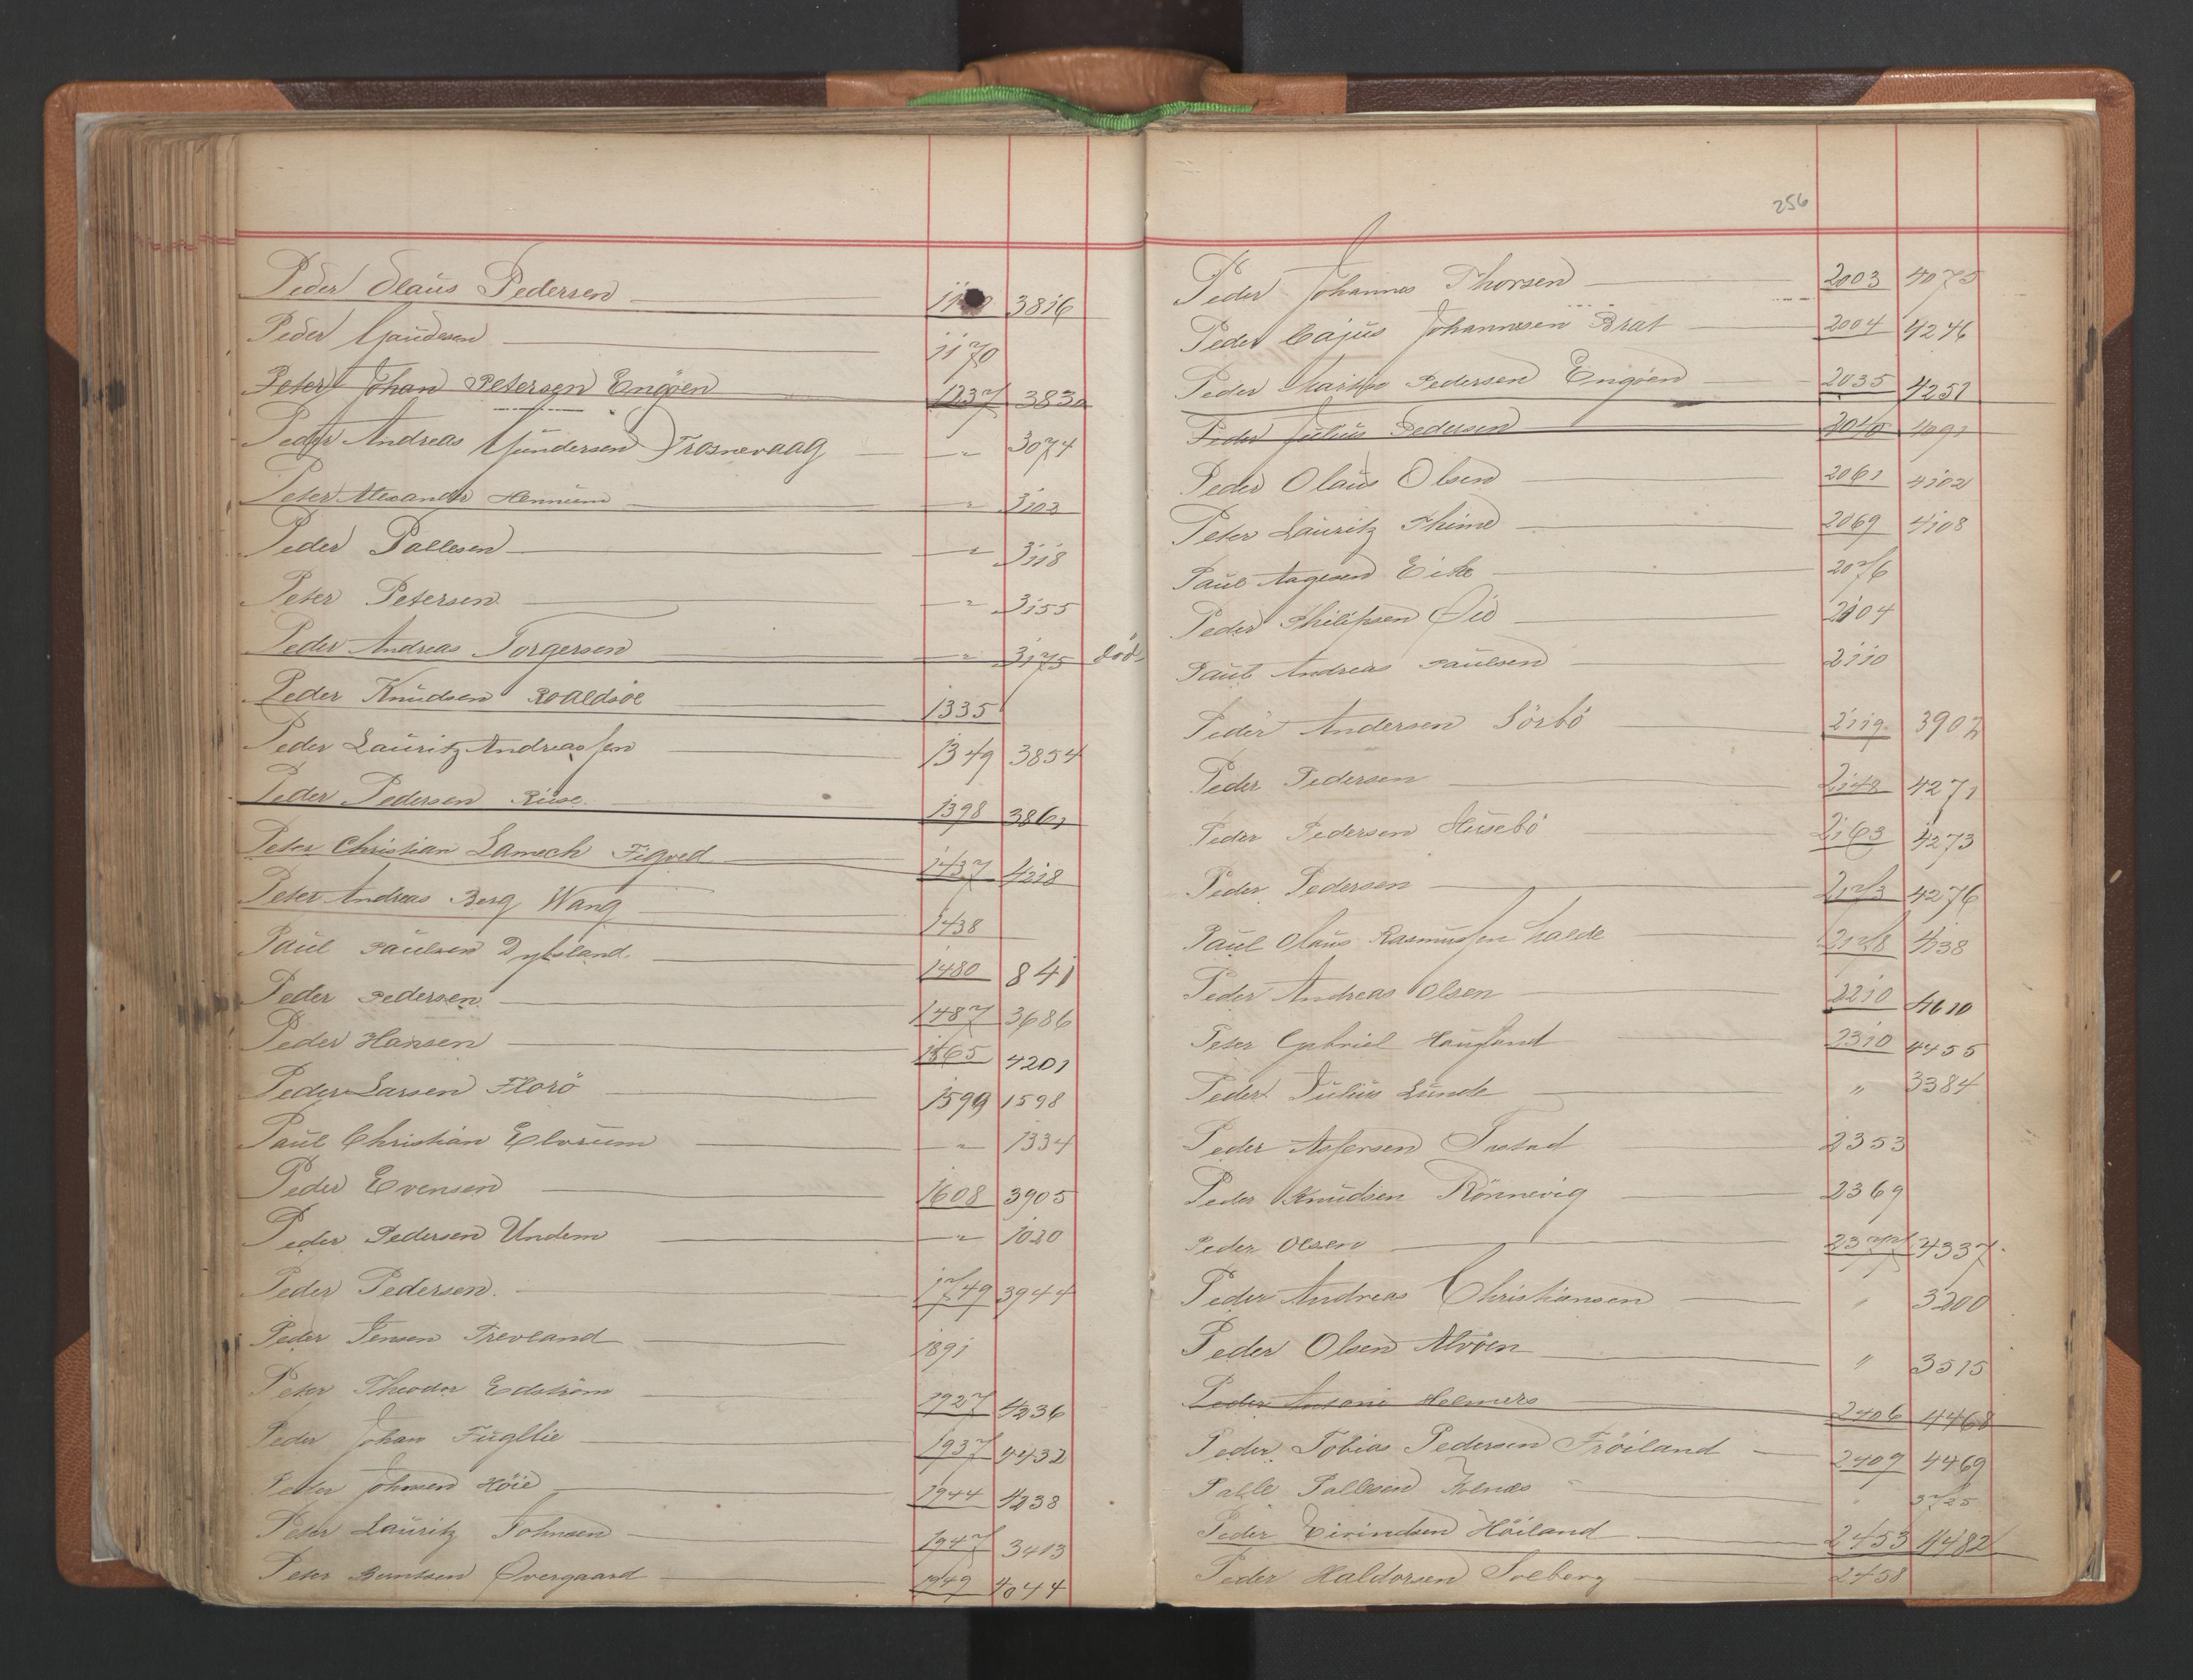 Peder Olaus Pedersen 3816
Peder Gaudesen 1170
Peter Johan Petersen Engöen 1237 3830
Peder Andreas Gundersen Trosnevaag " 3074
Peter Alexander " 3102
Peder Pallesen " 3118
Peter Petersen " 3155
Peder Andreas Torgersen " 3175 död
Peder Knudsen Roaldsöe 1335
Peder Lauritz Andreassen 1349 3854
Peder Pedersen Riise. 1398 3861
Peter Christian Lamech Figved 1437 4218
Peter Andreas Berg Wang 1438
Paul Paulsen Dybsland. 1480 841
Peder Pedersen 1487 3686
Peder Hansen 1565 4201
Peder Larsen Florö 1599 1598
Paul Christian Elvrum " 1334
Peder Evensen 1608 3905
Peder Pedersen Undem " 1020
Peder Pedersen. 1749 3944
Peder Jensen Trevland 1891
Peter Theodor Edström 1927 4236
Peder Johan Fugllie 1937 4432
Peder Johnsen Höie 1944 4238
Peder Lauritz Johnsen 1947 3413
Peter Berntsen Overgaard 1949 4044
256
Peder Johannes Thorsen 2003 4075
Peder Cajus Johannesen Brat 2004 4246
Peder Martin Pedersen Engöen 2035 4251
Peder Julius Pedersen 2040 4091
Peder Olaus Olsen 2061 4102
Peter Lauritz Thime 2069 4108
Paul Aagesen Eike 2076
Peder Philipsen Øie 2104
Paul Andreas Paulsen 2110
Peder Andersen Sörbö 2119 3902
Peder Pedersen 2148 4271
Peder Pedersen Husebö 2163 4273
Peder Pedersen 2173 4276
Paul Olaus Rasmussen Halde 2178 4138
Peder Andreas Olsen 2210 4610
Peter Gabriel Haugland 2310 4455
Peder Julius Lunde " 3384
Peder Asfersen 2353
Peder Knudsen Rönnevig 2369
Peder Olsen 2377 4337
Peder Andreas Christiansen " 3200
Peder Olsen Alvöen " 3515
Peder Antoni Helmers 2406 4468
Peder Tobias Pedersen Fröiland 2409 4469
Palle Pallesen Holnæs " 3725
Peder Eivindsen Höiland 2453 4482
Peder Haldorsen Solberg 2458